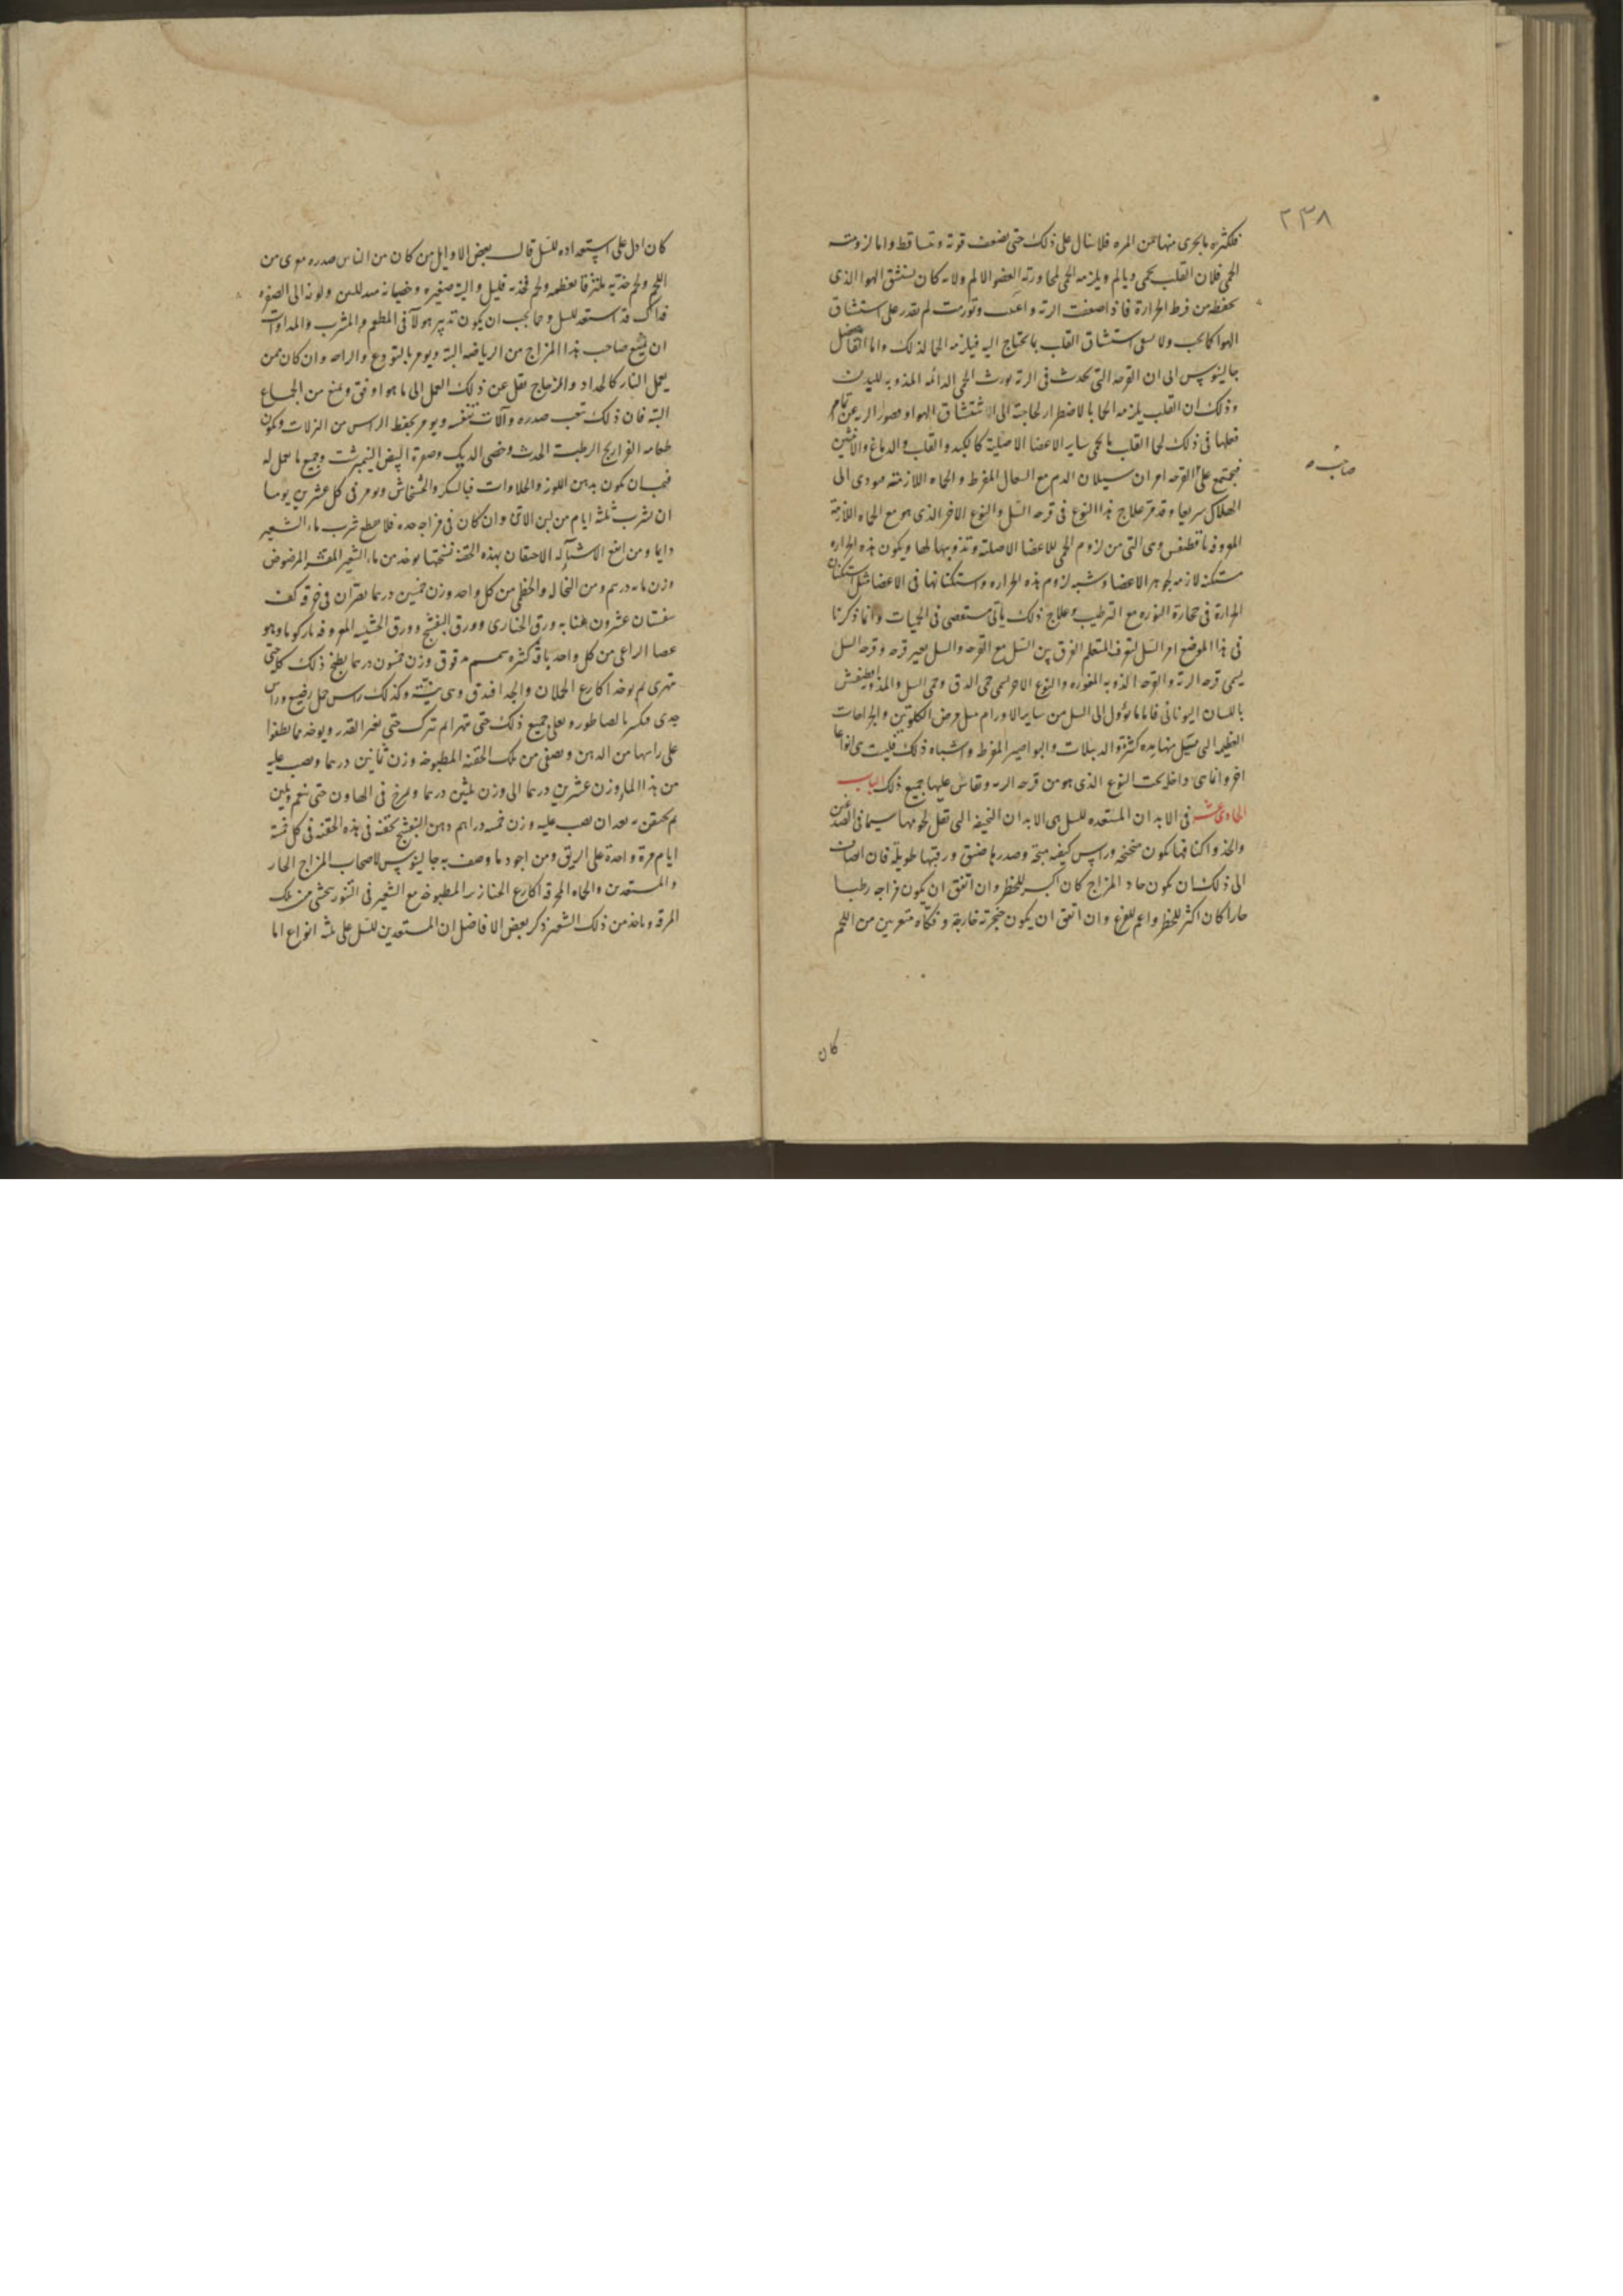 ٢٣٨
فلكثرة ما يجرى منها من المره فلا يزال على ذلك حتى يضعف قوته وتساقط واما لزومته
الحمى فلان القلب يحمى ويالم ويلزمه الحمى لمجاورته العضو الالم ولانه كان يستنشق الهوا الذى
يحفظه من فرط الحرارة فاذا ضعفت الرئه و وتورمت لم يقدر على استنشاق
الهوا كما يجب ولا استنشاق القلب ما يحتاج اليه فيلزمه الحما لذلك واما الفاضل
جالينوس الى ان القرحة التى تحدث فى الرئه يورث الحمى الدائمه المذوبه للبدن
وذلك ان القلب يلزمه الحما بالاضطرار لحاجته الى الاستنشاق الهوا وقصور الريه عن تمام
فعلها فى ذلك لحما القلب ما يحمى ساير الاعضا الاصلية كالكبد والقلب والدماغ والانثيين
فيجتمع على القرحه امران سيلان الدم مع السعال المفرط والحماه اللازمته مودى الى
صاحب
الهلاك سريعا وقد مر علاج هذا النوع فى قرحه السل والنوع الاخر الذى هو مع الحماه اللازمة
المعروفه باقطيقس وهى التى من لزوم الحمى للاعضا الاصلية وتذويبها لها ويكون هذه الحراره
مستكنه لازمه لجوهر الاعضا وشبه لزوم هذه الحراره واستكنانها فى الاعضا مثل استكنان
الحرارة فى حجارة النوره مع الترطيب وعلاج ذلك ياتى مستقصى فى الحميات وانما ذكرنا
فى هذا الموضع امر السل ليعرف المتعلم الفرق بين السل مع القرحه والسل بغير قرحه وقرحه السل
يسمى قرحه الرئه والقرحه الذوبه المغوره والنوع الاخر يسمى حمى الدق وحمى السل والمذوبه اقطيقس
باللسان اليونانى فاما ما يؤول الى السل من ساير الاورام مثل مرض الكلوتين والجراحات
العظيمه التى تسيل منها مده كثيرة والدبيلات والبواسير المفرط واشباه ذلك فليست هى انواعا
اخر وانما هى داخله تحت النوع الذى هو من قرحه الريه وتقاس عليها جميع ذلك الباب
الحادى عشر فى الابدان المستعده للسل هى الابدان النحيفه التى تقل لحومها سيما فى الصدغين
والخد واكتافها يكون مجنحه وراس كتفه وصدرها ضيق ورقبتها طويلة فان اضاف
الى ذلك ان يكون حاد المزاج كان اكبر للخطر وان اتفق ان يكون مزاجه رطبا
حارا كان اكثر للخطر واعم للفزع وان اتفق ان يكون حنجرته خارجة وفكاه متعريين من اللحم
كان
كان ادل على استعداده للسل قال بعض الاوايل من كان من الناس صدره من
اللحم ولحم خديه ملتزقا بعظمه ولحم فخذيه قليل واليته صغيره وخصيانه ولونه الى الصفره
فذاك قد استعد للسل ومما يجب ان يكون تدبير هولآ فى المطعم والمشرب والمداواة
ان يمنع صاحب هذا المزاج من الرياضه البته ويومر بالتودع والراحه وان كان ممن
يعمل النار كالحداد والزجاج نقل عن ذلك العمل الى ما هو اوفق ويمنع من الجماع
البته فان ذلك يتعب صدره وآلات تنفسه ويومر بحفظ الراس من النزلات ويكون
طعامه الفراريج الرطبه الحدث وخصى الديك وصفرة البيض النيمبرشت وجميع ما يعمل له
فيجب ان يكون بدهن اللوز والحلاوات فبالسكر والخشخاش ويومر فى كل عشرين يوما
ان يشرب ثلثه ايام من لبن الاتن وان كان فى مزاجه حده فلا شرب ماء الشعير
دايما ومن انفع الاشيآ له الاحتقان بهذه الحقنه نسختها يوخذ من ماء الشعير المقشر المرضوض
وزن مايه درهم ومن النخاله والخطمى من كل واحد وزن خمسين درهما يصران فى خرقه كتان
سفستان عشرون عنابه ورق الخبازى وورق البنفسج وورق الحشيشه المعروفه وهو
عصا الراعى من كل واحد باقه كثيره سمسم مدقوق وزن خمسون درهما يطبخ ذلك كله حتى
يتهرى ثم يوخذ اكارع الحملان والجدا وهى وكذلك راس حمل رضيع وراس
جدى فيكسر بالساطور ويغلى جميع ذلك حتى يتهرا ثم يترك حتى القدر ويوخذ مما يطفوا
على راسها من الدهن ويصفى من تلك الحقنه المطبوخه وزن ثمانين درهما ويصب عليه
من هذا الماء وزن عشرين درهما الى وزن ثلثين درهما ويمرخ فى الهاون حتى ينعم ويلين
ثم يحتقن به بعد ان يصب عليه وزن خمسه دراهم دهن البنفسج يحقنه فى هذه الحقنه فى كل خمسة
ايام مرة واحدة على الريق ومن اجود ما وصف به جالينوس لاصحاب المزاج الحار
والمستعدين والحماه المحرقه اكارع الخنازير المطبوخه مع الشعير فى التنور يتحشى من تلك
المرقه وياخذ من ذلك الشعير ذكر بعض الافاضل ان المستعدين للسل على ثلثه انواع اما